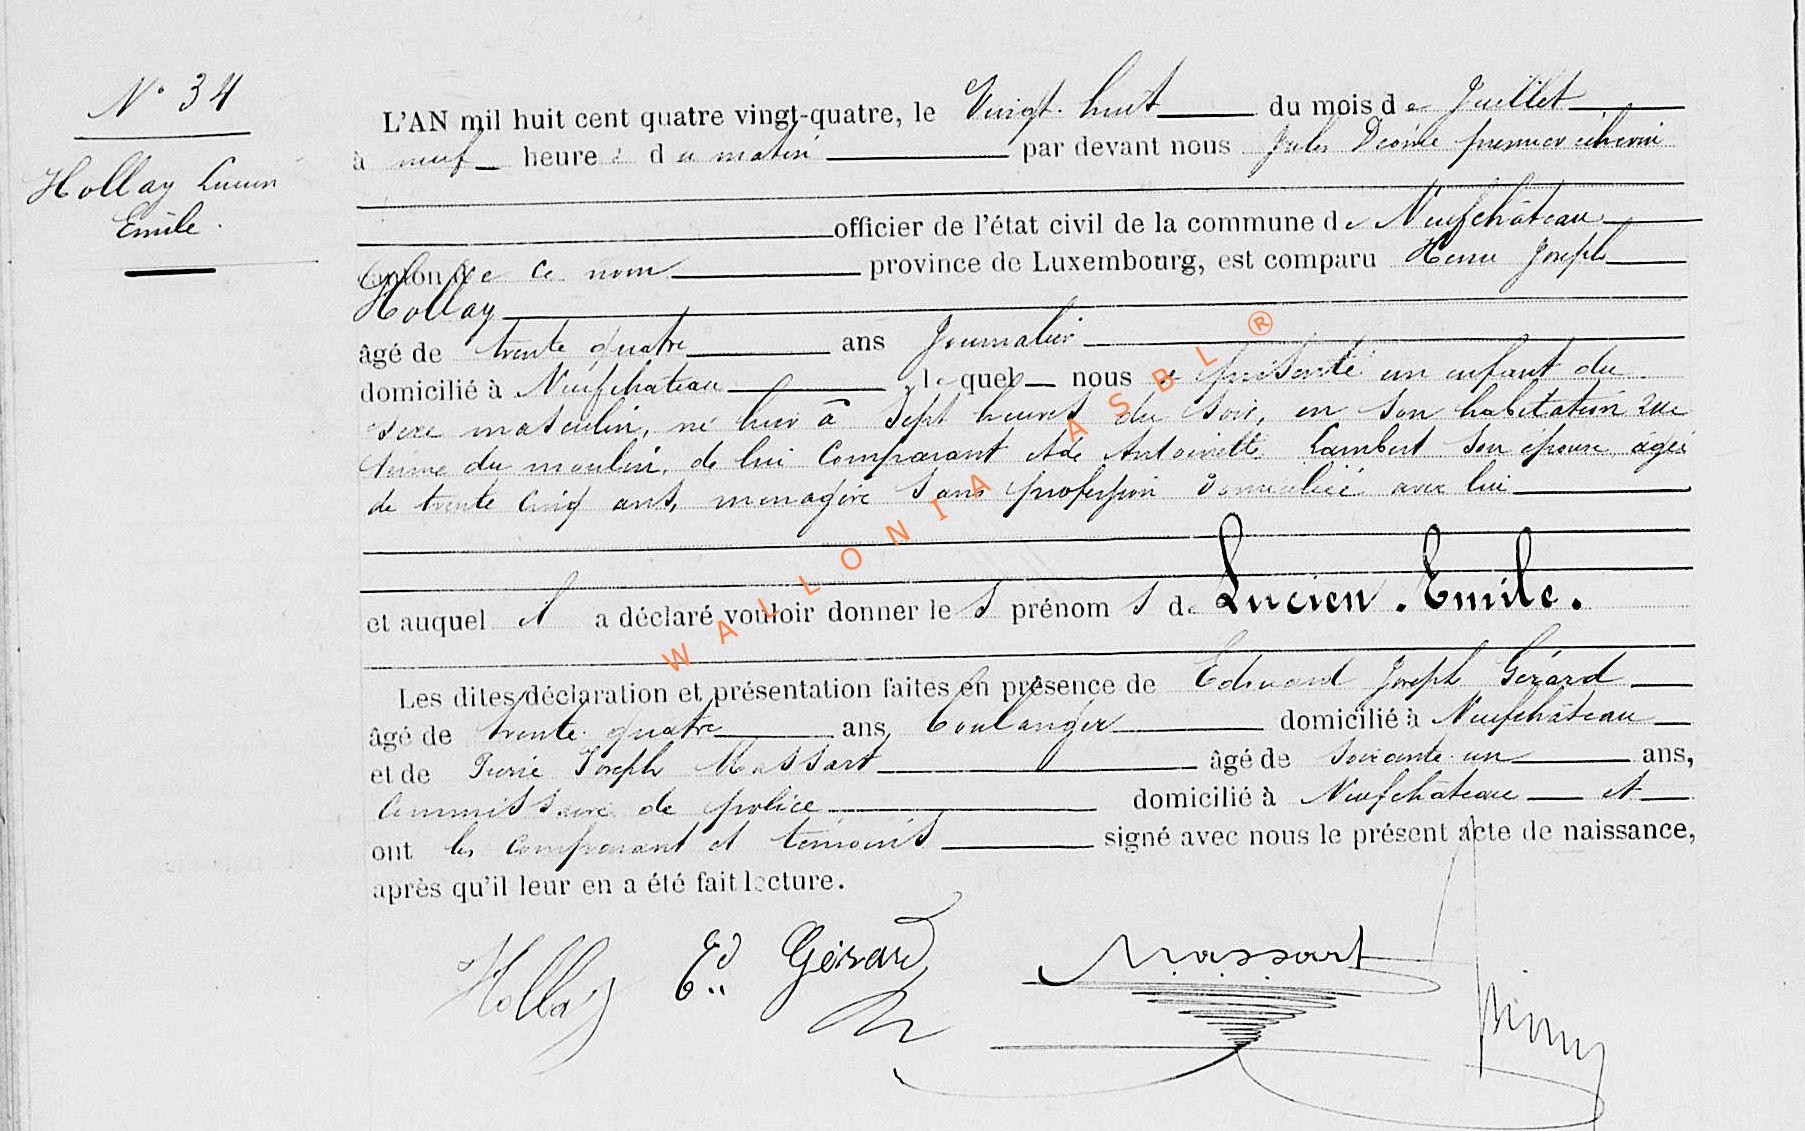 N° 34
Hollay Lucien
Emile.
L'AN mil huit cent quatre vingt-quatre, le Vingt-huit du mois de Juillet
à neuf heures du matin par devant nous Jules premier échevin
officier de l'état civil de la commune de Neufchâteau
canton de ce nom province de Luxembourg, est comparu Henri Joseph
Hollay
âgé de trente quatre ans Journalier
domicilié à Neufchâteau lequel nous a présenté un enfant du
sexe masculin, né hier à sept heures du soir, en son habitation rue
du moulin, de lui Comparant et de Antoinette Lambert son épouse âgée
de trente cinq ans, menagère sans profession domiciliée avec lui
et auquel il a déclaré vouloir donner les prénoms de Lucien. Emile.
Les dites déclaration et présentation faites en présence de Edouard Joseph Gérard
âgé de trente quatre ans, boulanger domicilié à Neufchâteau
et de Pierre Joseph Massart âgé de soixante un ans,
Commissaire de police domicilié à Neufchâteau et
ont les comparant et témoins signé avec nous le présent acte de naissance,
après qu'il leur en a été fait lecture.
Hollay Ed Gérard Massart
WALLONIA ASBL ®